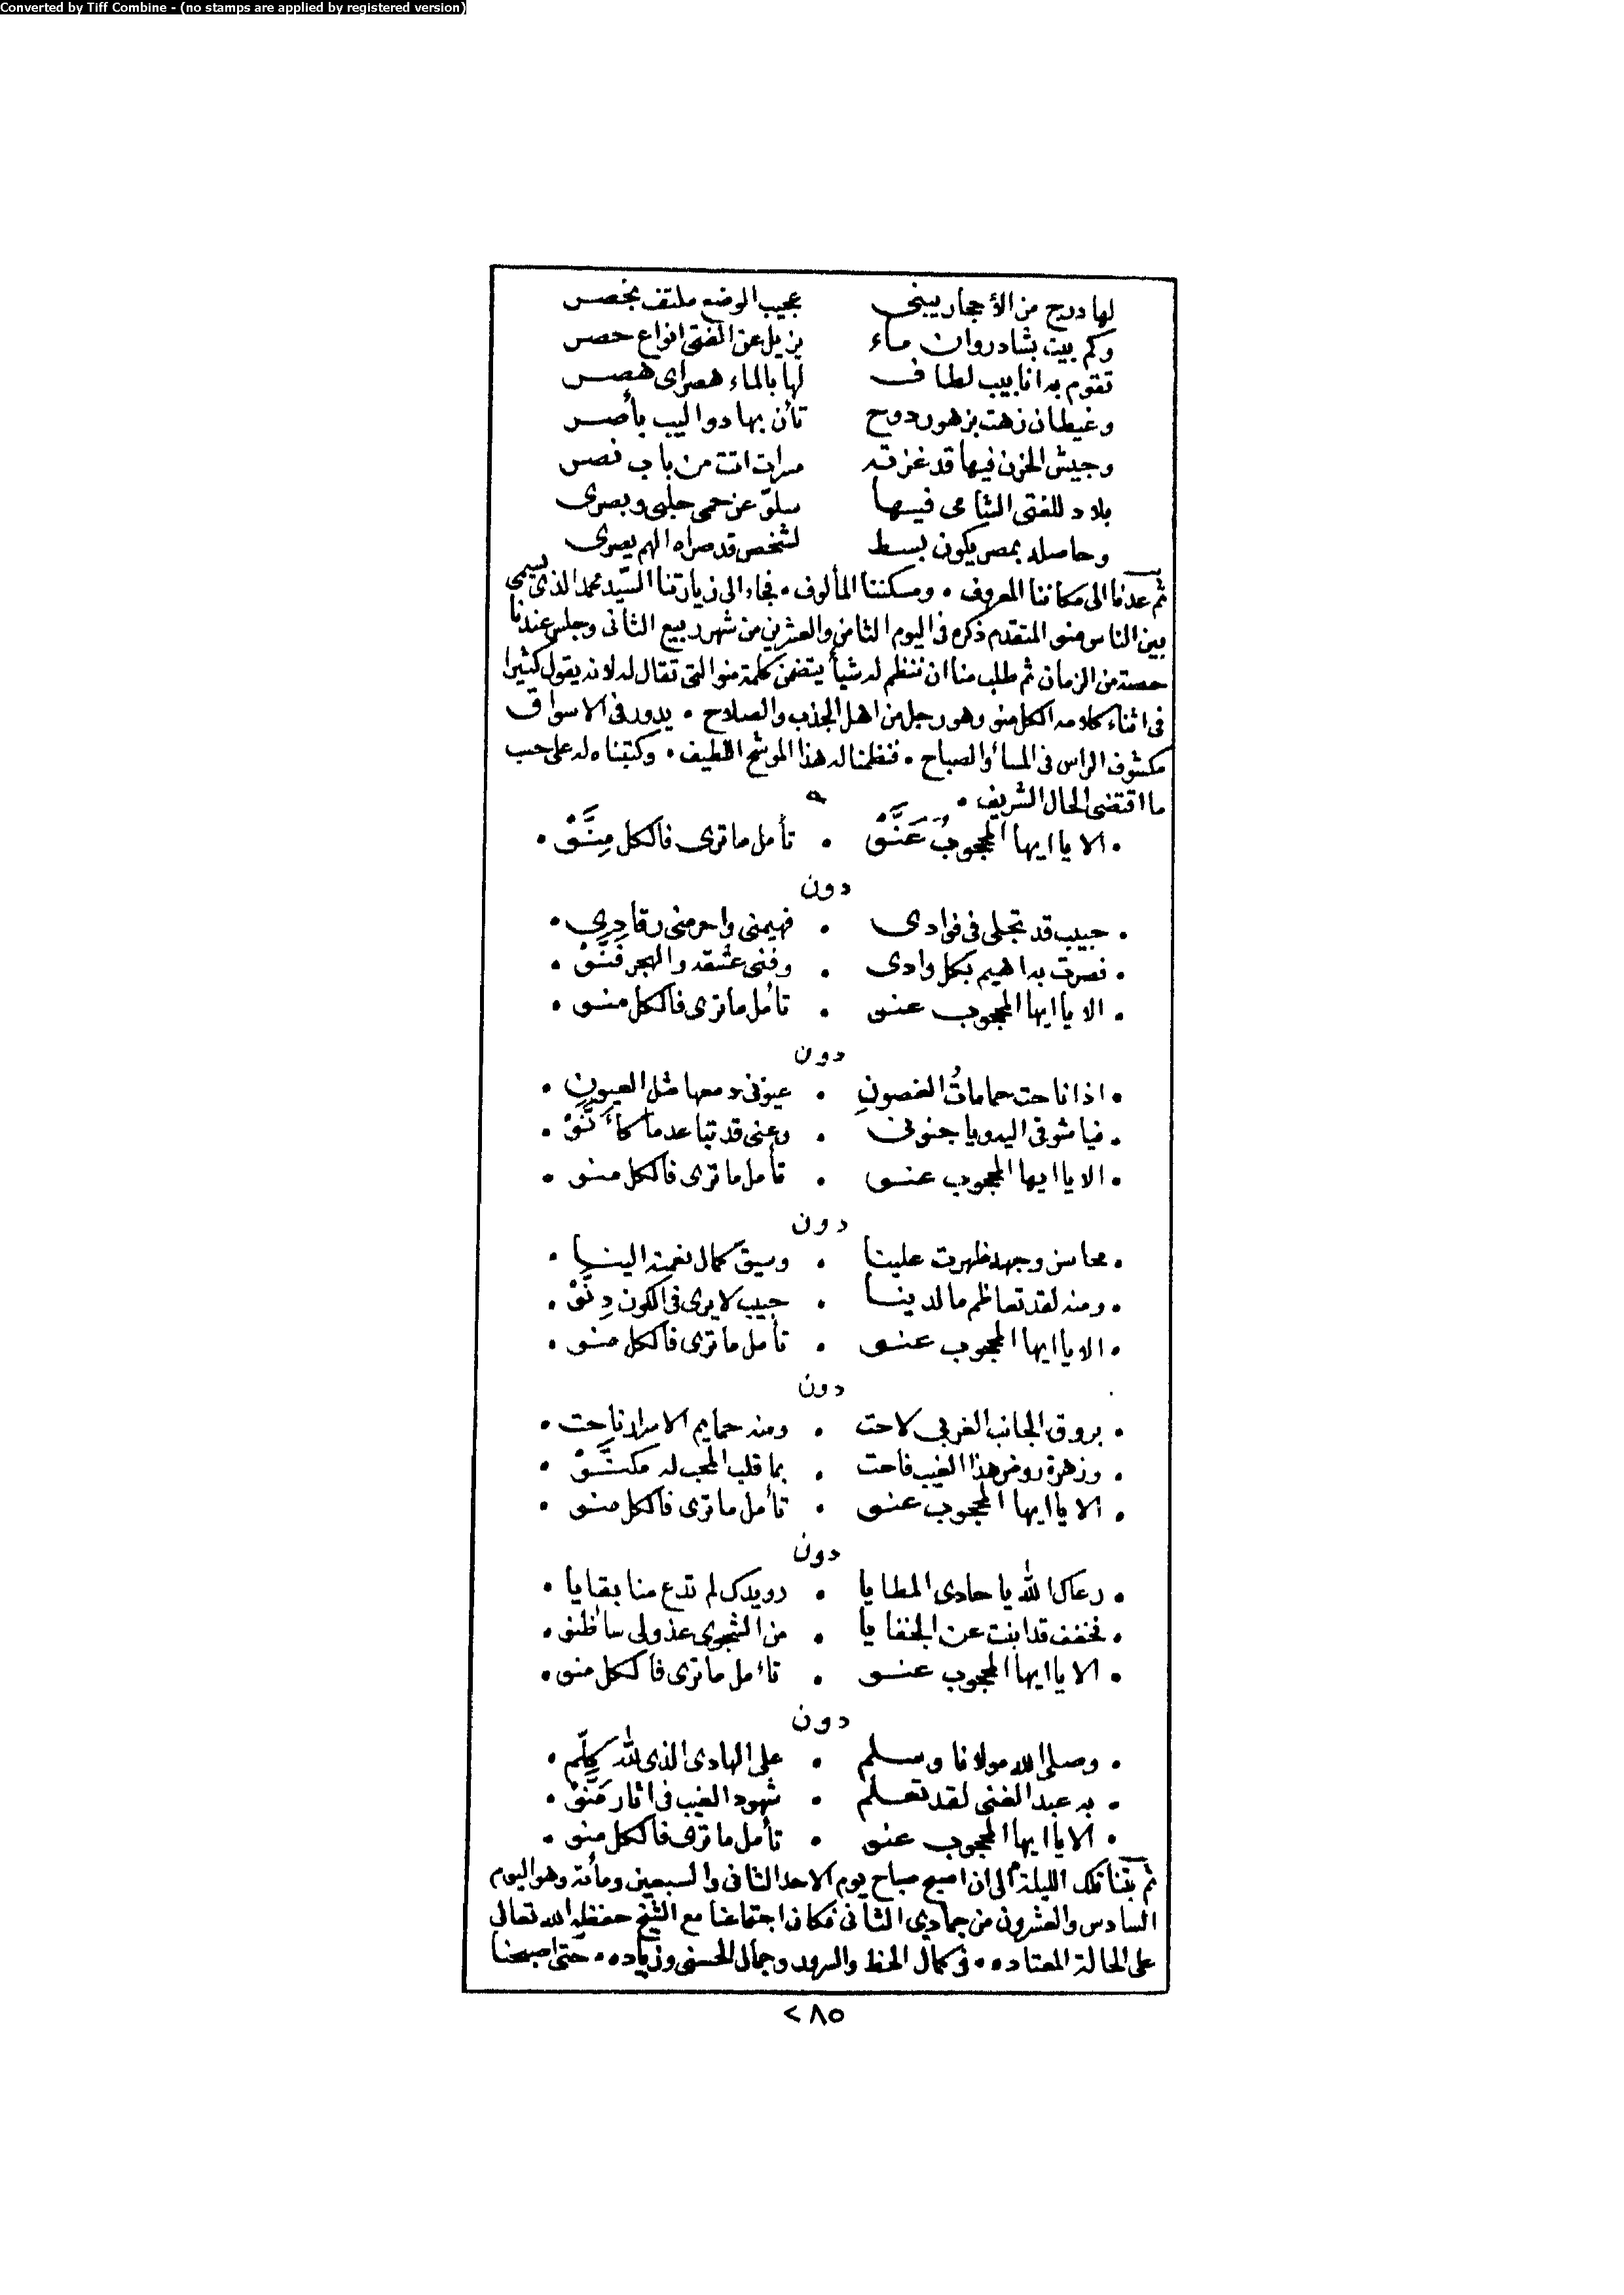 Converted by Tiff Combine - (no stamps are applied by registered version)
لها درج من الأحجار يبنى عجيب الوضع ملتف بخصر
وكم بيت بشادروان ماء يزيل عن الفتى انواع حصر
تقوم به انابيب لطاف لها بالماء هصر اى هصر
وغيطان زهت بزهور دوح تأن بها دواليب بأصر
وجيش الحزن فيها قد غزته مسرات اتت من باب نصر
بلاد للفتى الشامى فيها سلوّ عن حمى حلبى وبصرى
وحاصله بمصر يكون بسط لشخص قد صراه الهم يصرى
ثم عدنا الى مكاننا المعروف • ومسكننا المألوف • فجاء الى زيارتنا السيّد محمد الذى يسمى
بين الناس منو المتقدم ذكره فى اليوم الثامن والعشرين من شهر ربيع الثانى وجلس عندنا
حصة من الزمان ثم طلب منا ان ننظم له شيأ يتضمن كلمة منو التى تقال له لانه يقول كثيرا
فى اثناء كلامه الكل منو وهو رجل من اهل الجذب والصلاح • يدور فى الاسواق
مكشوف الراس فى المساء والصباح • فنظمنا له هذا الموشح اللطيف • وكتبناه له على حسب
ما اقتضى الحال الشريف •
• الا يا ايها المحجوبُ عَنَّوْ • تأمل ما ترى فالكل مِنَّوْ •
دون
• حبيب قد تجلى فى فؤادى • فهيمنى واحرمنى رقادِى •
• فصرت به اهيم بكل وادى • وفنى عشقه والهجر فَنَّوْ •
• الا يا ايها المحجوب عنو • تأمل ما ترى فالكل منو •
دون
• اذا ناحت حماماتُ الغصونِ • عيونى دمعها مثل العيونِ •
• فيا شوقى اليه ويا جنونى • وعنى قد تباعد ما كأنَّوْ •
• الا يا ايها المحجوب عنو • تأمل ما ترى فالكل منو •
دون
• محاسن وجهه ظهرت علينا • وسيق كمال نعمته الينا •
• ومنه لقد تعاظم ما لدينا • حبيب لا يرى فى الكون دِنَّوْ •
• الا يا ايها المحجوب عنو • تأمل ما ترى فالكل منو •
دون
• بروق الجانب الغربى لاحت • ومنه حمايم الاسرار ناحت •
• وزهرة روض هذا الغيب فاحت • بما قلب المحب له مكنَّوْ •
• الا يا ايها المحجوب عنو • تأمل ما ترى فالكل منو •
دون
• رعاك الله يا حادى المطايا • رويدك لم تدع منا بقايا •
• فخفف قد ابنت عن الخفايا • من الشجوى عذولى ساء ظنو •
• الا يا ايها المحجوب عنو • تأمل ما ترى فالكل منو •
دون
• وصلى الله مولانا وسلم • على الهادى الذى لله كلّم •
• به عبد الغنى لقد تعلم • شهود الغيب فى اثار مَنَّوْ •
• الا يا ايها المحجوب عنو • تأمل ما ترى فالكل منو •
ثم بتنا تلك الليلة الى ان اصبح صباح يوم الاحد الثانى والسبعين ومأئة وهو اليوم
السادس والعشرون من جمادى الثانى فكان اجتماعنا مع الشيخ حفظه الله تعالى
على الحالة المعتاده • فى كمال الحظ والسرور وجمال الحسنى وزياده • حتى اصبحنا
٢٨٥